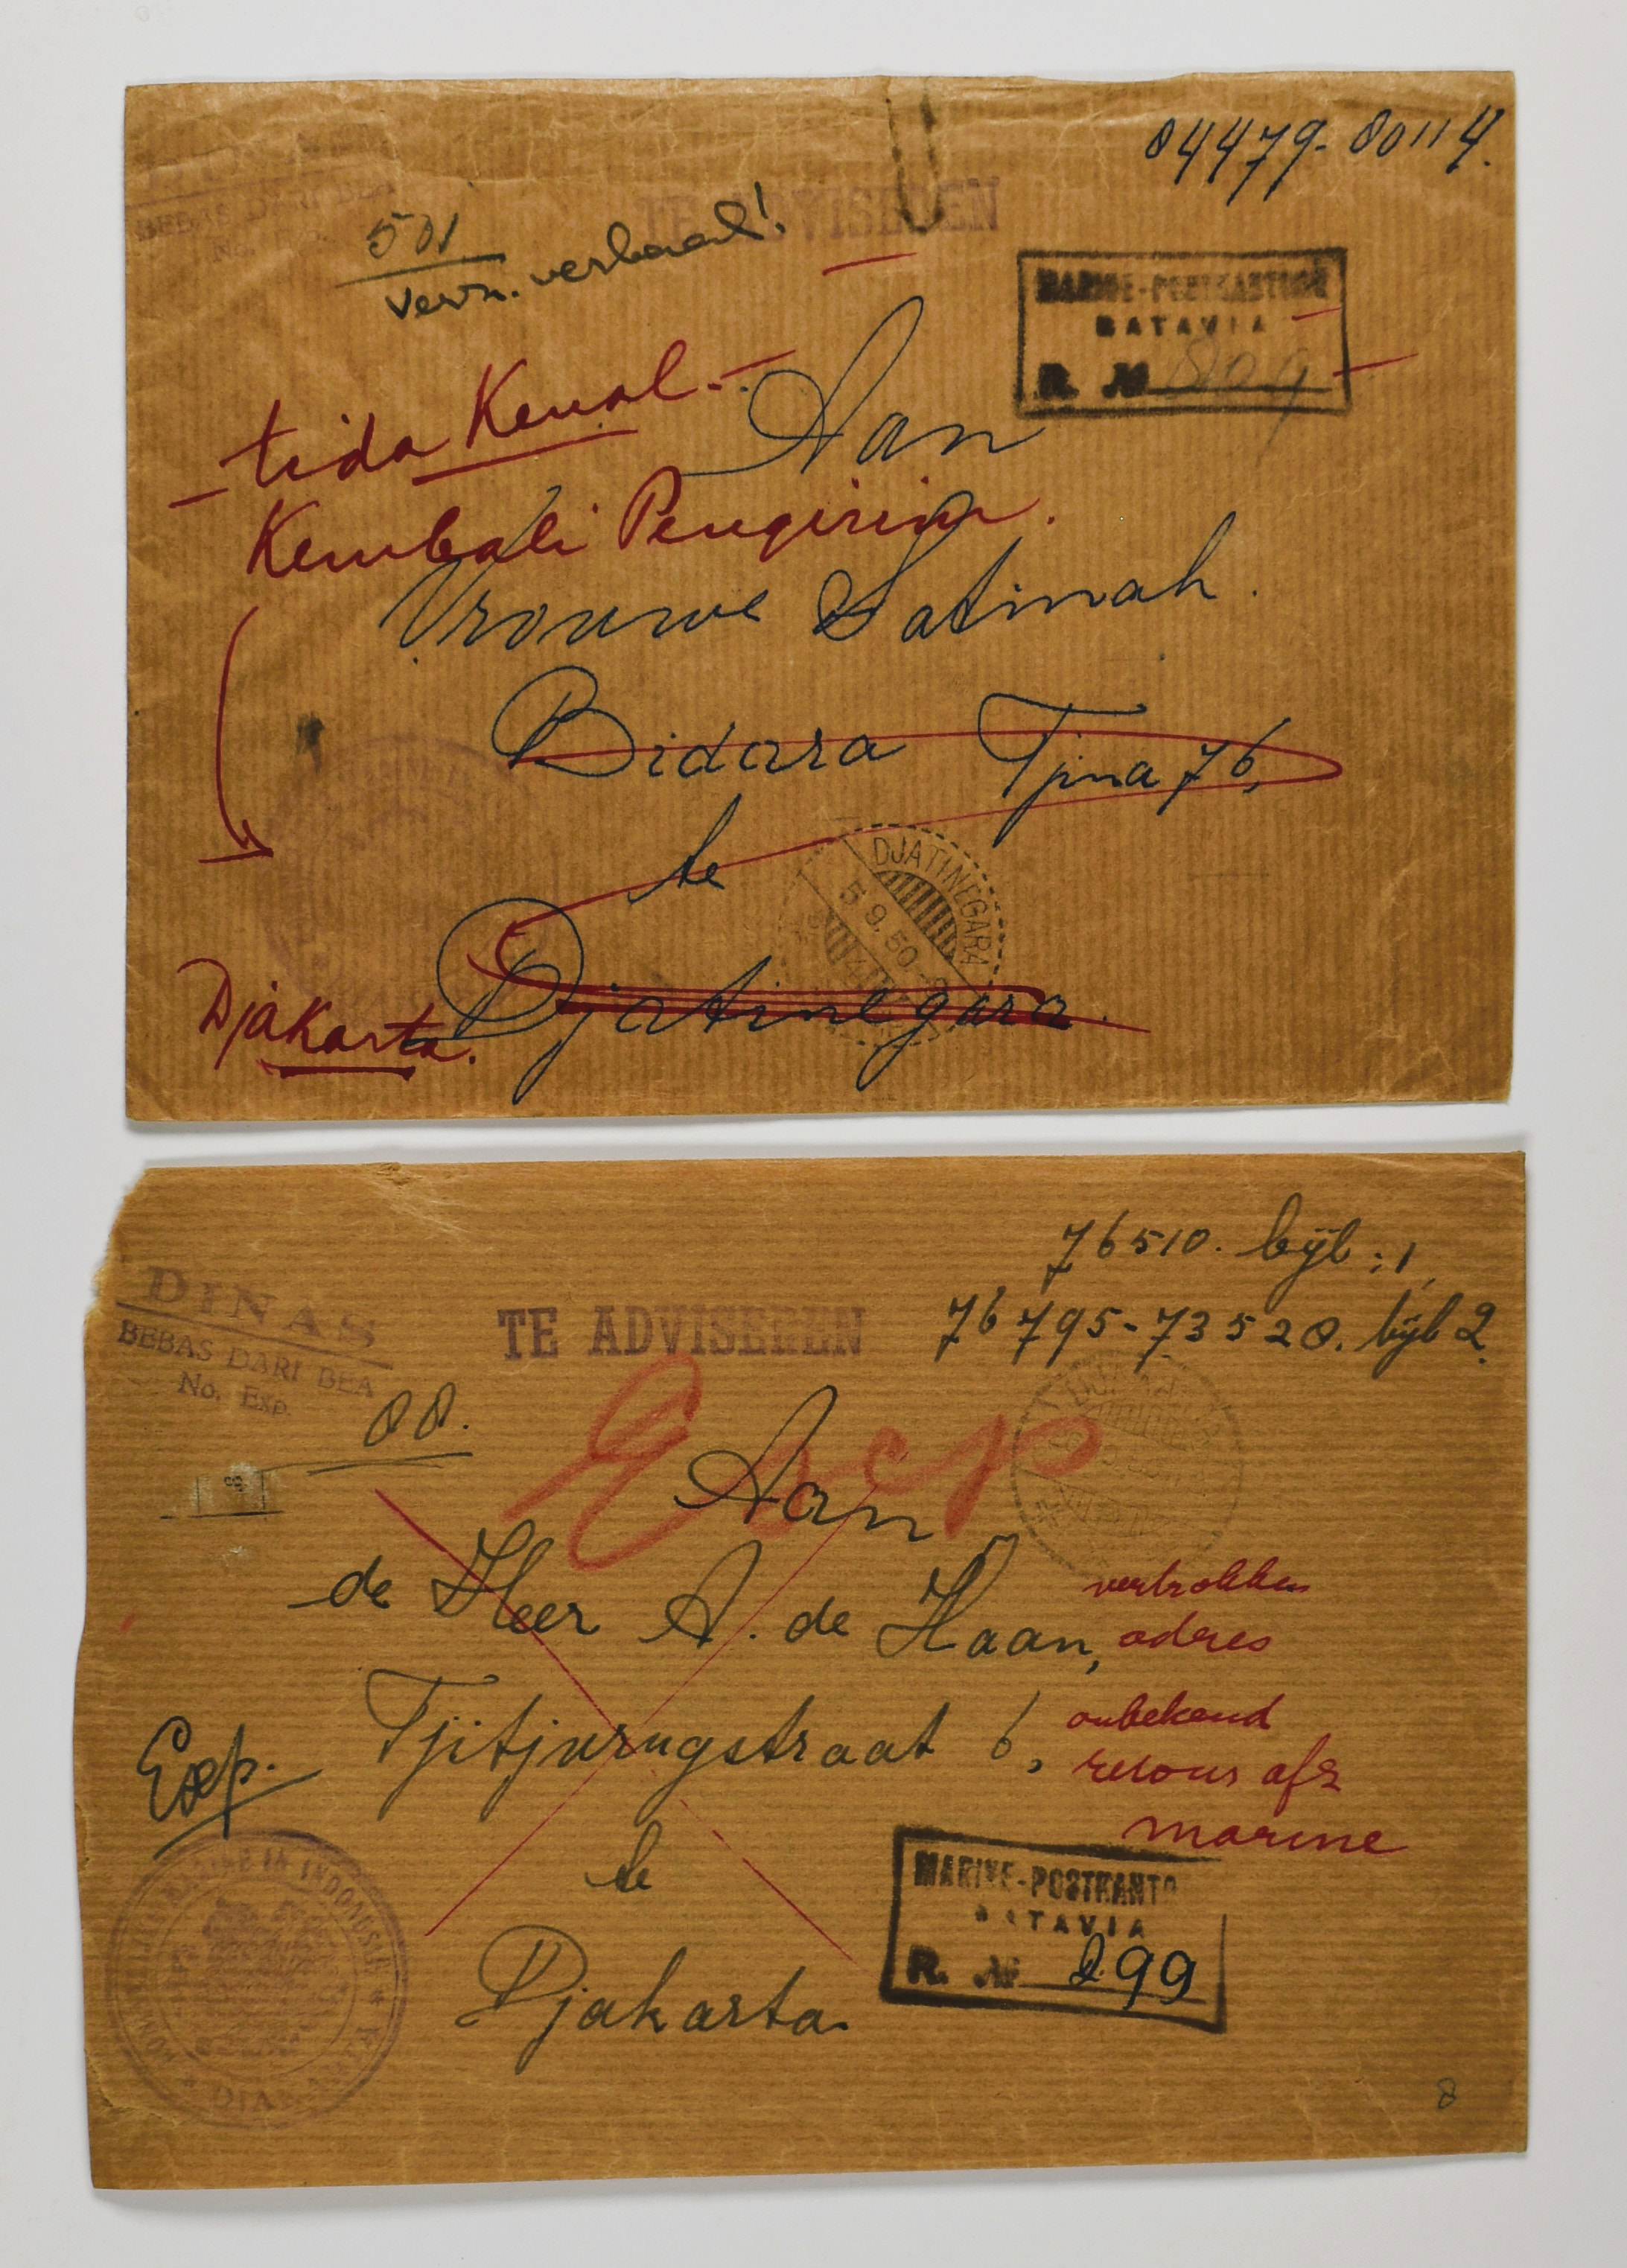 04479-80114.
BEBAS DARI BEA
No. Exp.
TE ADVISEREN
501
vern. verbaal!
MARINE-POSTKANTOOR
BATAVIA
R. № 809
tida Kenal.-
Aan
Kembali Pengirim.
Vrouwe Satinah.
Bidara Tjina 76,
te
DJATINEGARA
5.9.50
Djatinegara.
Djakarta.
76510. bijl: 1,
76795-73520. bijl 2.
DINAS
BEBAS DARI BEA
No. Exp.
TE ADVISEREN
88.
Exp
Aan
de Heer A. de Haan,
vertrokken
adres
Tjitjurugstraat 6,
onbekend
retour afz
marine
Exp.
te
Djakarta.
MARINE-POSTKANTO
BATAVIA
R. № 299
KONINKLIJKE MARINE IN INDONESIE
8